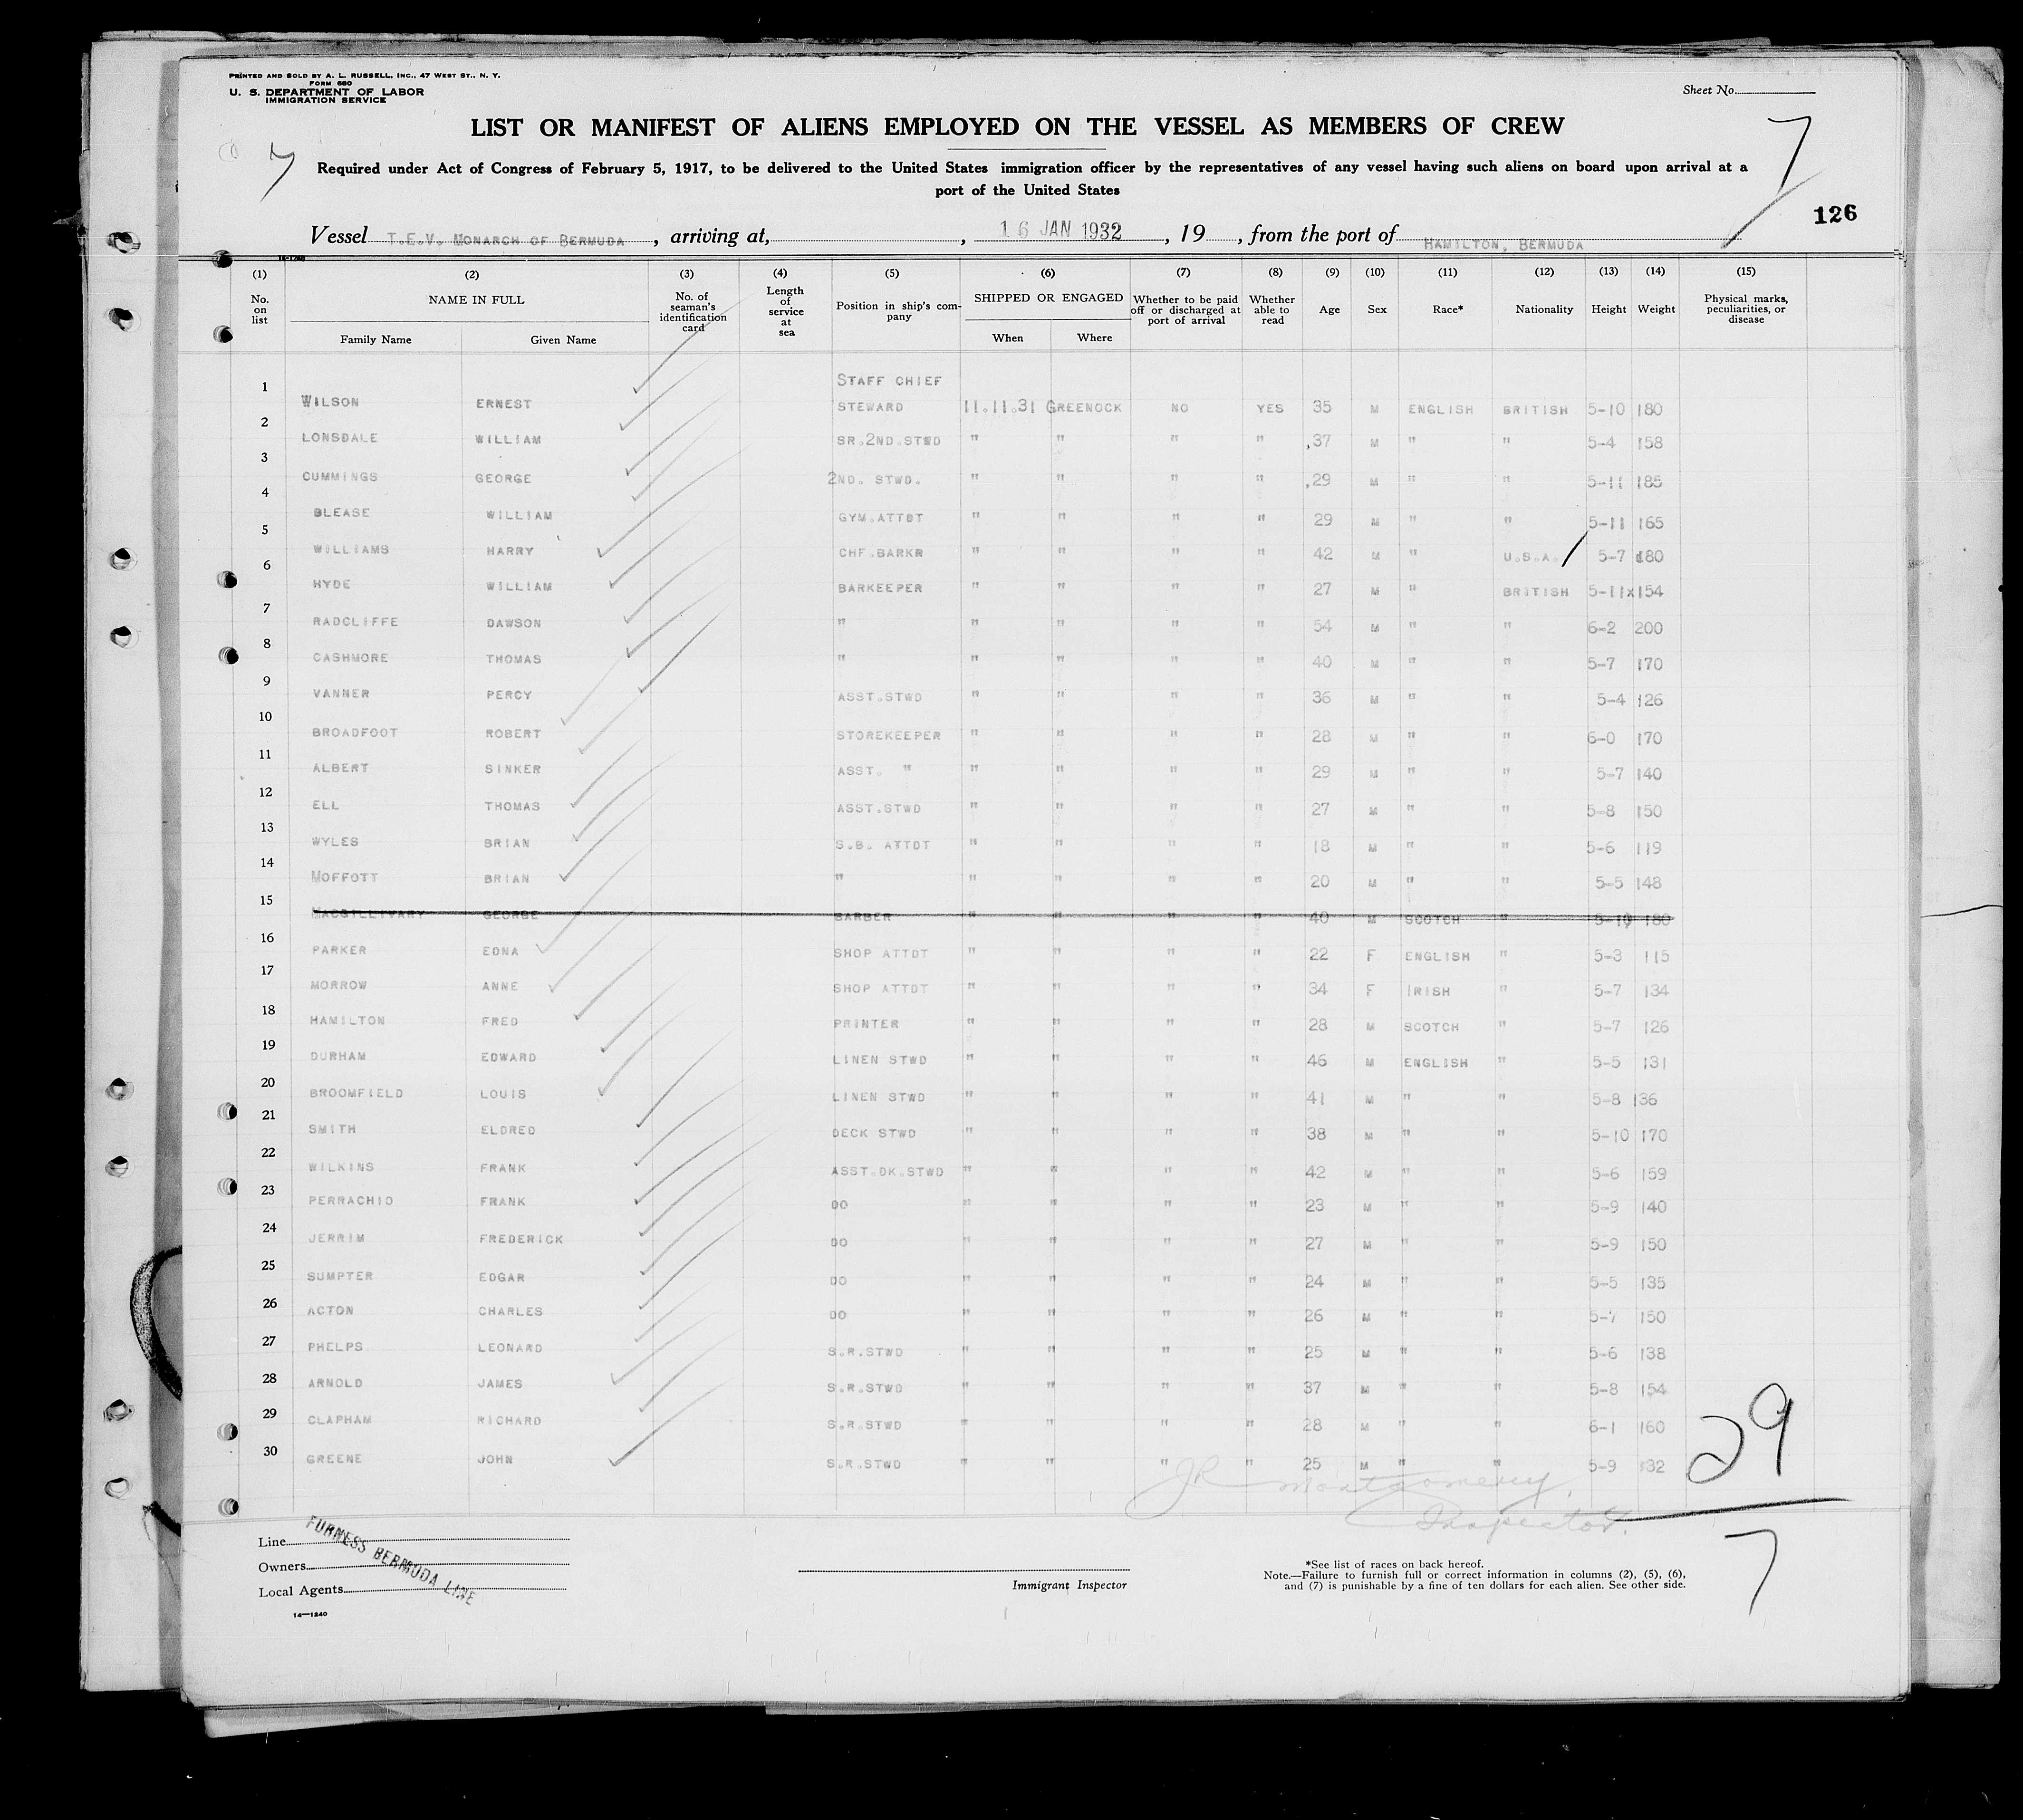 PRINTED AND SOLD BY A. L. RUSSELL, INC., 47 WEST ST., N. Y.
FORM 680
U. S. DEPARTMENT OF LABOR
IMMIGRATION SERVICE
Sheet No.
LIST OR MANIFEST OF ALIENS EMPLOYED ON THE VESSEL AS MEMBERS OF CREW
7 7
Required under Act of Congress of February 5, 1917, to be delivered to the United States immigration officer by the representatives of any vessel having such aliens on board upon arrival at a
port of the United States
126
Vessel T.E.V. MONARCH OF BERMUDA, arriving at, , 16 JAN 1932, 19 , from the port of HAMILTON, BERMUDA
(1) (2) (3) (4) (5) (6) (7) (8) (9) (10) (11) (12) (13) (14) (15)
No. on list NAME IN FULL Family Name Given Name No. of seaman's identification card Length of service at sea Position in ship's company SHIPPED OR ENGAGED When Where Whether to be paid off or discharged at port of arrival Whether able to read Age Sex Race* Nationality Height Weight Physical marks, peculiarities, or disease
1 WILSON ERNEST STAFF CHIEF STEWARD 11.11.31 GREENOCK NO YES 35 M ENGLISH BRITISH 5-10 180
2 LONSDALE WILLIAM SR.2ND.STWD " " " " 37 M " " 5-4 158
3 CUMMINGS GEORGE 2ND. STWD. " " " " 29 M " " 5-11 185
4 BLEASE WILLIAM GYM.ATTDT " " " " 29 M " " 5-11 165
5 WILLIAMS HARRY CHF.BARKR " " " " 42 M " U.S.A. 5-7 180
6 HYDE WILLIAM BARKEEPER " " " " 27 M " BRITISH 5-11x154
7 RADCLIFFE DAWSON " " " " " 54 M " " 6-2 200
8 CASHMORE THOMAS " " " " " 40 M " " 5-7 170
9 VANNER PERCY ASST.STWD " " " " 36 M " " 5-4 126
10 BROADFOOT ROBERT STOREKEEPER " " " " 28 M " " 6-0 170
11 ALBERT SINKER ASST. " " " " " 29 M " " 5-7 140
12 ELL THOMAS ASST.STWD " " " " 27 M " " 5-8 150
13 WYLES BRIAN S.B. ATTDT " " " " 18 M " " 5-6 119
14 MOFFOTT BRIAN " " " " " 20 M " " 5-5 148
15 MACGILLIVARY GEORGE BARBER " " " " 40 M SCOTCH " 5-10 180
16 PARKER EDNA SHOP ATTDT " " " " 22 F ENGLISH " 5-3 115
17 MORROW ANNE SHOP ATTDT " " " " 34 F IRISH " 5-7 134
18 HAMILTON FRED PRINTER " " " " 28 M SCOTCH " 5-7 126
19 DURHAM EDWARD LINEN STWD " " " " 46 M ENGLISH " 5-5 131
20 BROOMFIELD LOUIS LINEN STWD " " " " 41 M " " 5-8 136
21 SMITH ELDRED DECK STWD " " " " 38 M " " 5-10 170
22 WILKINS FRANK ASST.DK.STWD " " " " 42 M " " 5-6 159
23 PERRACHIO FRANK DO " " " " 23 M " " 5-9 140
24 JERRIM FREDERICK DO " " " " 27 M " " 5-9 150
25 SUMPTER EDGAR DO " " " " 24 M " " 5-5 135
26 ACTON CHARLES DO " " " " 26 M " " 5-7 150
27 PHELPS LEONARD S.R.STWD " " " " 25 M " " 5-6 138
28 ARNOLD JAMES S.R.STWD " " " " 37 M " " 5-8 154
29 CLAPHAM RICHARD S.R.STWD " " " " 28 M " " 6-1 160
30 GREENE JOHN S.R.STWD " " " " 25 M " " 5-9 132
29
7
JR Montgomery.
Inspector.
Line
Owners
Local Agents
FURNESS BERMUDA LINE
Immigrant Inspector
*See list of races on back hereof.
Note.—Failure to furnish full or correct information in columns (2), (5), (6),
and (7) is punishable by a fine of ten dollars for each alien. See other side.
14—1240